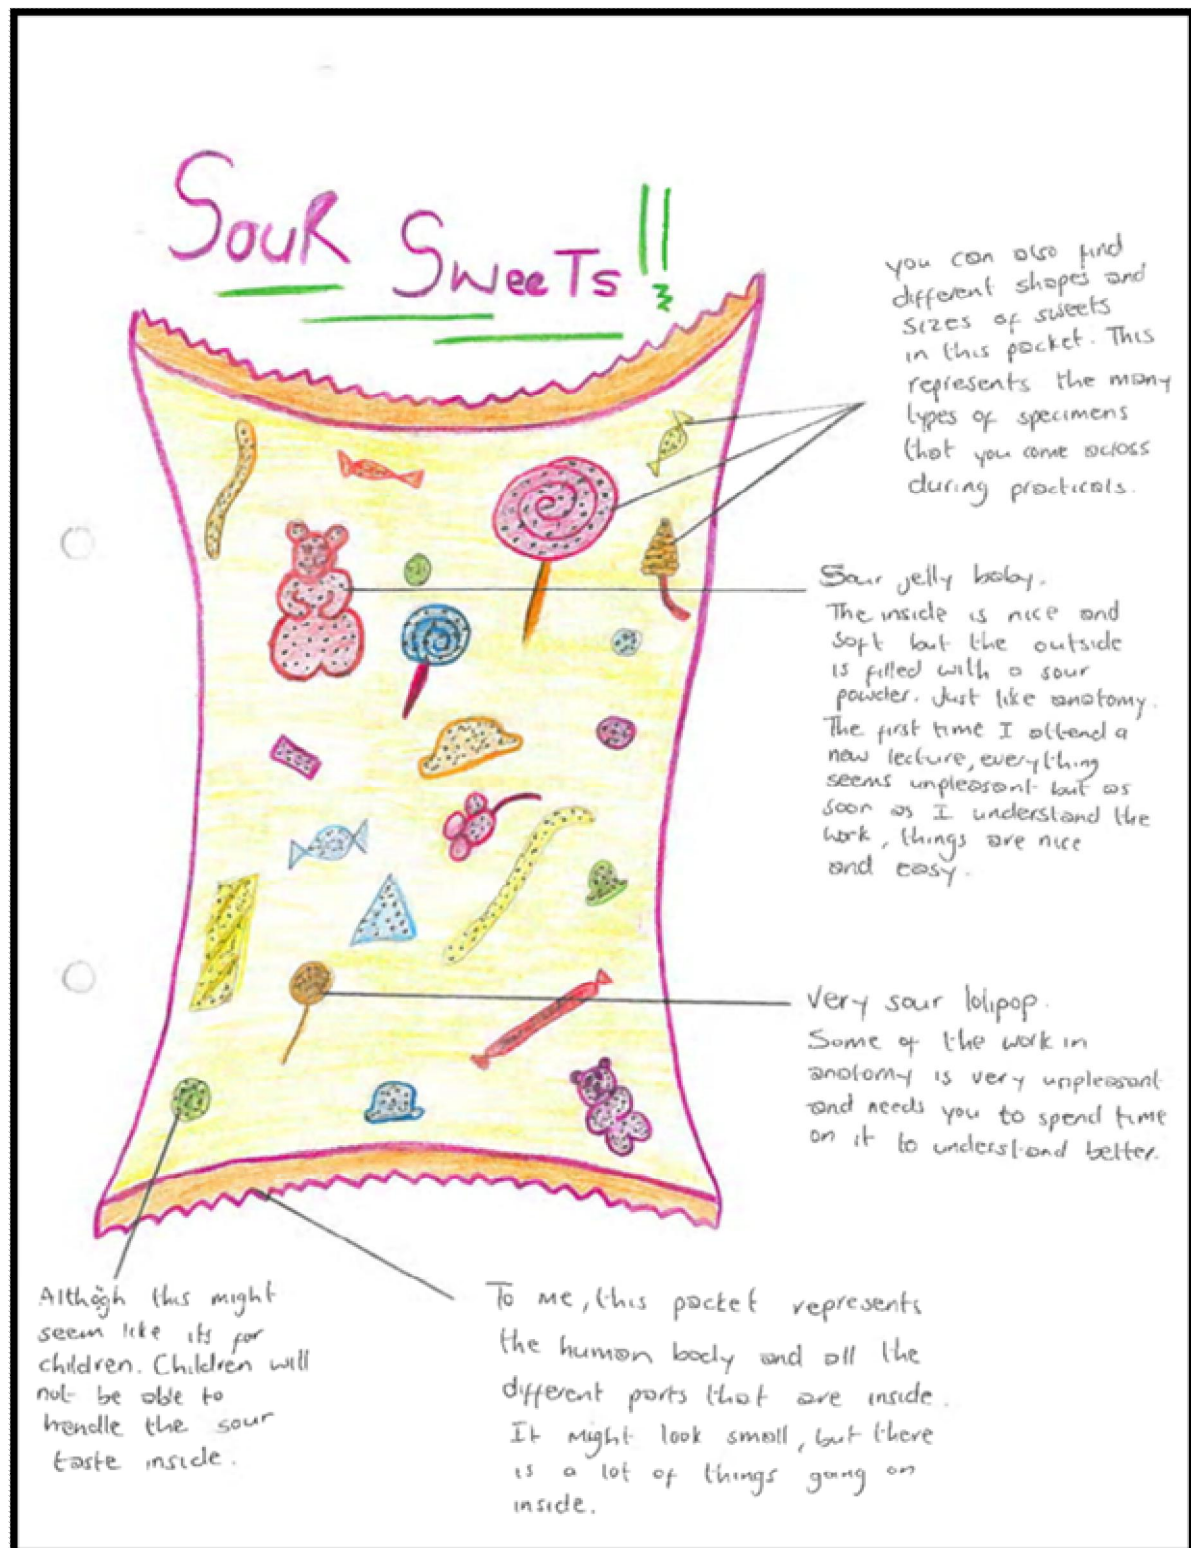 SouR SweeTs!!
you can also find
different shapes and
sizes of sweets
in this packet. This
represents the many
types of specimens
that you come across
during practicals.
Sour jelly baby.
The inside is nice and
soft but the outside
is filled with a sour
powder. Just like anatomy.
The first time I attend a
new lecture, everything
seems unpleasant but as
soon as I understand the
work, things are nice
and easy.
Very sour lolipop.
Some of the work in
anatomy is very unpleasant
and needs you to spend time
on it to understand better.
Although this might
seem like its for
children. Children will
not be able to
handle the sour
taste inside.
To me, this packet represents
the human body and all the
different parts that are inside.
It might look small, but there
is a lot of things going on
inside.